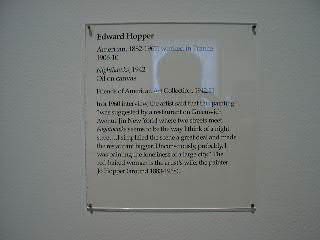 Edward Hopper
American, 1882-1967; worked in France
1906-10
Nighthawks, 1942
Oil on canvas
Friends of American Art Collection, 1942.51
In a 1960 interview, the artist said that this painting
"was suggested by a restaurant on Greenwich
Avenue [in New York] where two streets meet.
Nighthawks seems to be the way I think of a night
street. I simplified the scene a great deal and made
the restaurant bigger. Unconsciously, probably, I
was painting the loneliness of a large city." The
red-haired woman is the artist's wife, the painter
Jo Hopper (around 1883-1968).